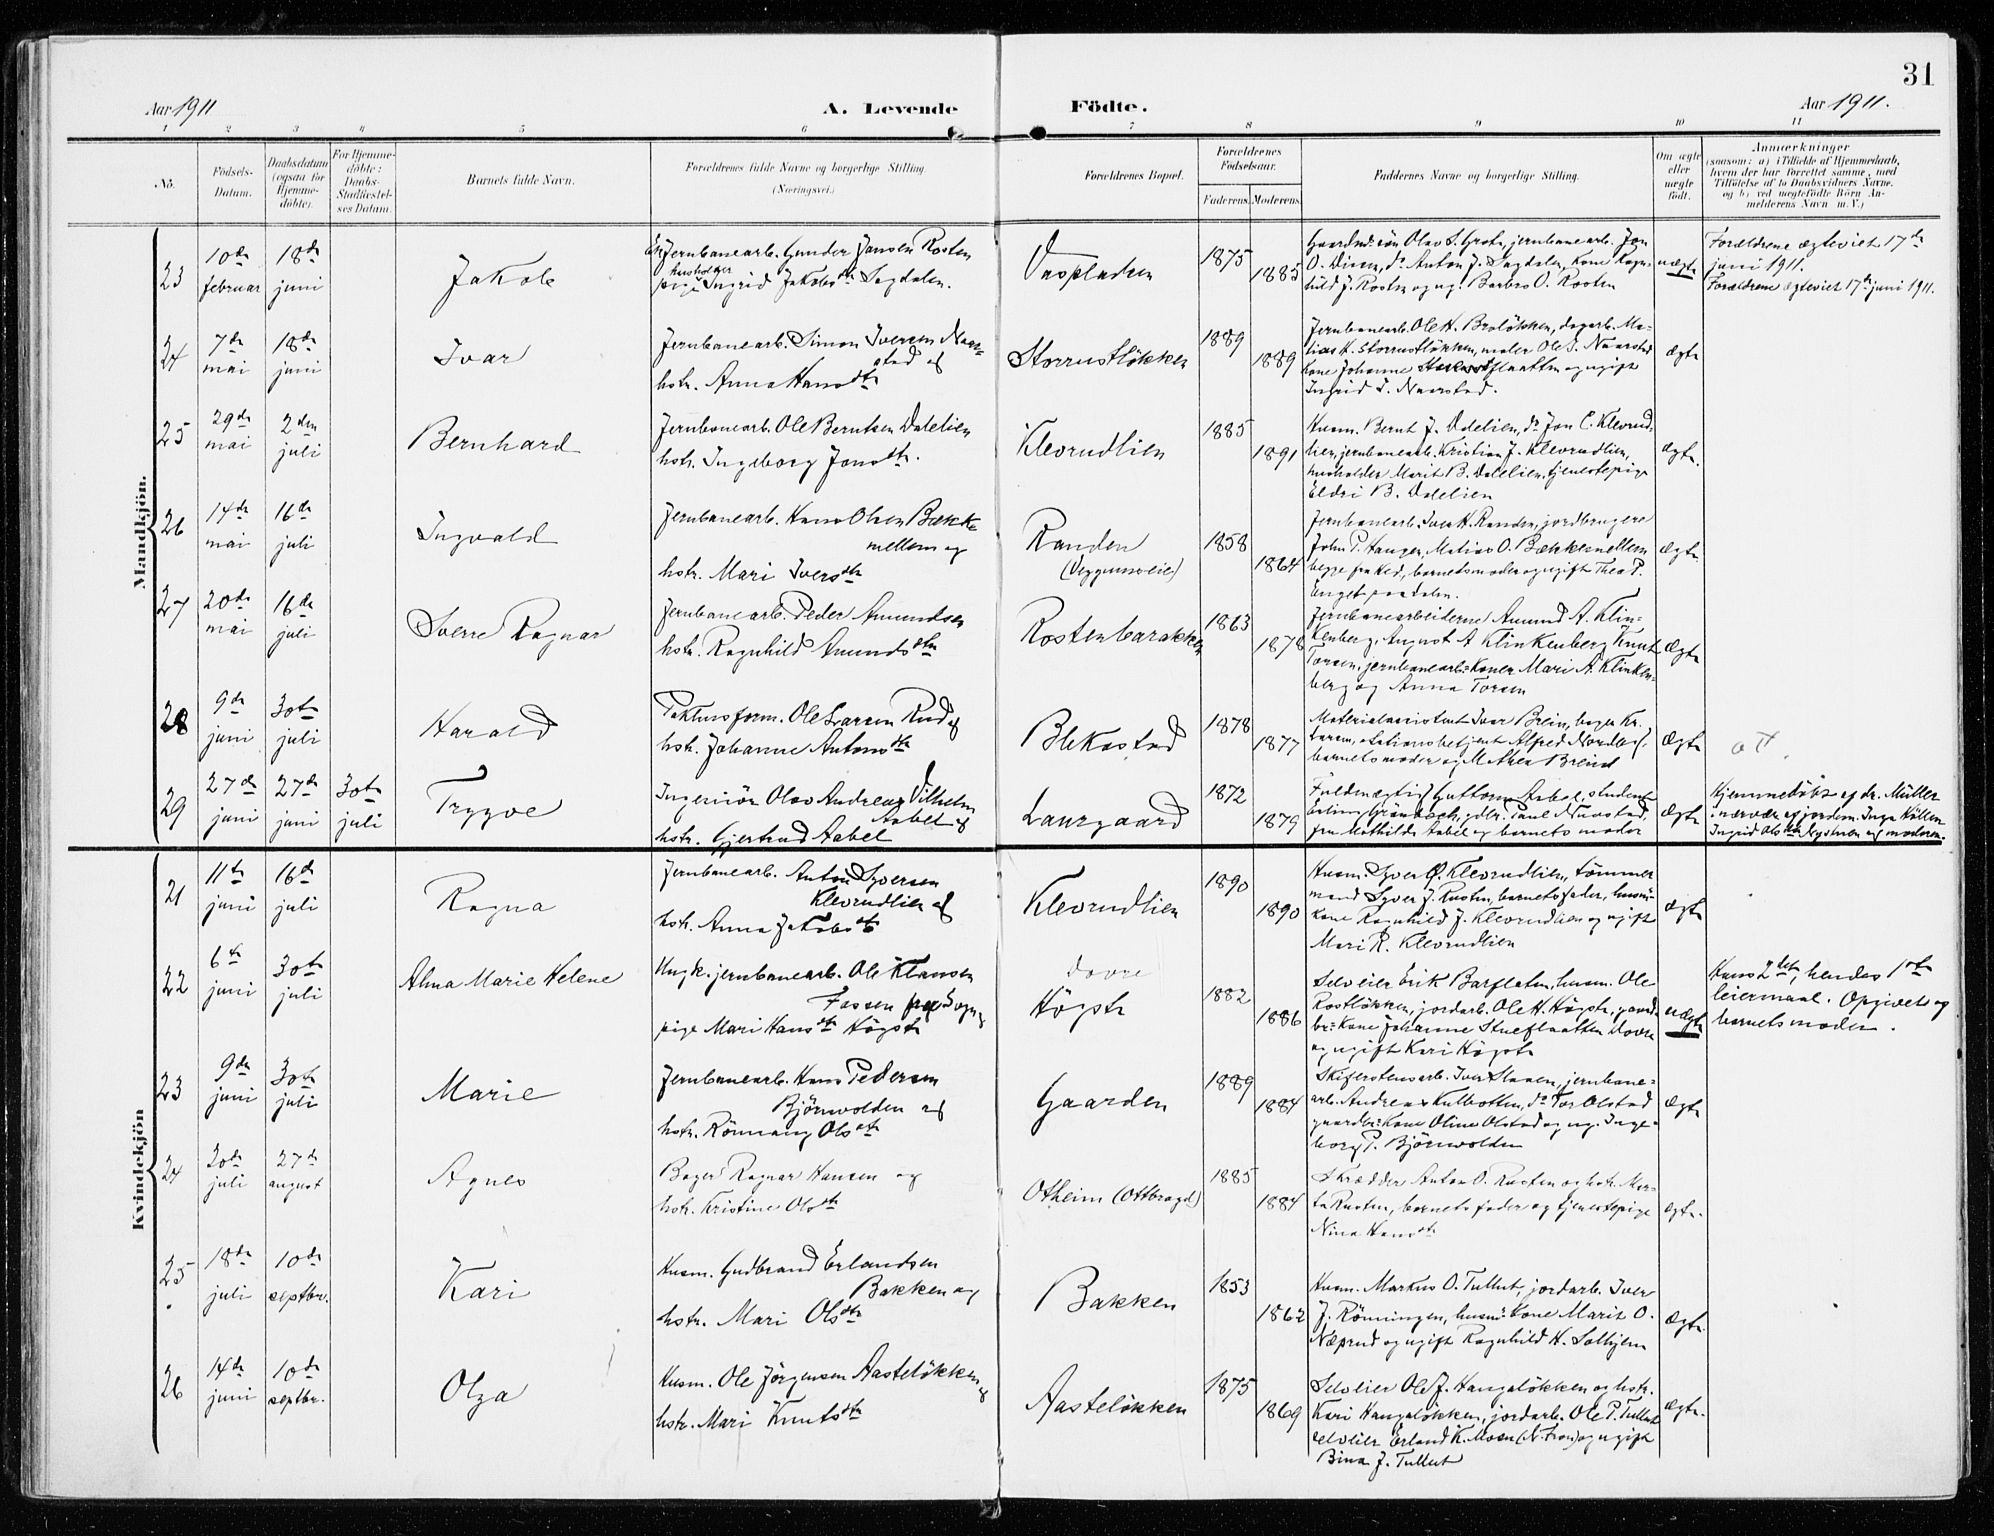 31
Aar 1911
A. Levende Födte.
Aar 1911.
1 2 3 4 5 6 7 8 9 10 11
No.
Födsels-
Datum.
Daabsdatum
(ogsaa for
Hjemme-
döbte).
For Hjemme-
döbte:
Daabs-
Stadfæstel-
ses Datum.
Barnets fulde Navn.
Forældrenes fulde Navne og borgerlige Stilling.
(Næringsvei.)
Forældrenes Bopæl.
Forældrenes
Födselsaar.
Faderens. Moderens.
Faddernes Navne og borgerlige Stilling.
Om ægte
eller
uægte
født.
Anmærkninger
(saasom: a) i Tilfælde af Hjemmedaab,
hvem der har forrettet samme, med
Tilföielse af to Daabsvidners Navne.
og b) ved uægtefödte Börn An-
melderens Navn m. V.)
Mandkjön.
23
10de
februar
18de
juni
Jakob
Jernbanearb. Gunder Jansen Rosten
pige Ingrid Jakobsdtr Sagdalen.
1875
1885
Gaardmd.søn Olav S. Grotn, jernbanearb. Jon
hild J. Rosten og ug. Barbro O. Rosten
uægte
Forældrene ægteviet 17de
juni 1911.
Forældrene ægteviet 17de juni 1911.
24
7de
mai
18de
juni
Ivar
Jernbanearb. Simon Iversen Naar-
stad og
hstr. Anna Hansdtr
Storrustløkken
1889
1889
Jernbanearb. Ole H. Broløkken, dagarb. Ma-
tias H. Storrustløkken, maler Ole S. Naarstad
kone Johanne flaatten og ugift
Ingrid I. Naarstad.
ægte
25
29de
mai
2den
juli
Bernhard
Jernbanearb. Ole Berntsen Dalelien
hstr. Ingeborg Jonsdtr.
Klevrudlien
1885
1891
Husm. Bernt J. Dalelien, do Jon C. Klevrud-
lien, jernbanearb. Kristian J. Klevrudlien,
husholder Marit B. Dalelien, tjenestepige
Eldri B. Dalelien
ægte.
26
14de
mai
16de
juli
Ingvald
Jernbanearb. Hans Olsen Bække
mellem og
hstr. Mari Iversdtr
Randen
(Veggumseie)
1858
1864
Jernbanearb. Iver H. Randen, jordbrugere
John P. Hauger, Matias O. Bækkemellem
begge fra Hed., barnets moder og ugift Thea P.
Enget
ægte.
27
20de
mai
16de
juli
Sverre Ragnar
Jernbanearb. Peder Amundsen
hstr. Ragnhild Amundsdtr
Rostenbarakken
1863
1878
Jernbanearbeiderne Amund A. Klin-
kenberg, August A Klinkenberg Knut
Torsen, jernbanearb: Koner Mari A. Klinken-
berg og Anna Torsen
ægte
28
9de
juni
30te
juli
Harald
Ole Larsen Rud og
hstr. Johanne Antonsdtr
Blekastad
1878
1877
Materialassistent Ivar Brein, bager Kr.
Larsen, stationsbetjent Alfred Nordberg,
barnets moder og Mathea Breind
ægte
ott.
29
27de
juni
27de
juni
30te
juli
Trygve
Ingeniör Olav Andreas Vilhelm
Aabel og
hstr. Gjertrud Aabel
Laurgaard
1872
1879
Fuldmægtig Guttorm Aabel, student
Erling Grönbech, gbr. Paul Nustad,
fru Mathilde Aabel og barnets moder
ægte
Hjemmedöbt af dr. Müller
i nærvær af jordem. Inga Köllen
Ingrid Olsdtr Rysteren og moderen.
Kvindekjön
21
11te
juni
16de
juli
Ragna
Jernbanearb. Anton Syversen
Klevrudlien og
hstr. Anna Jakobsdtr
Klevrudlien
1890
1890
Husm. Syver Ø. Klevrudlien, tömmer
mand Syver J. Rusten, barnets fader, husm:
kone Ragnhild J. Klevrudlien og ugift
Mari R. Klevrudlien
ægte
22
6te
juni
30te
juli
Alma Marie Helene
Ungk. jernbanearb. Ole Klausen
Fossen fra Sogn og
pige Mari Hansdtr Högste
dovre
Högste
1882
1886
Selveier Erik Barflaten, husm. Ole
Rostløkken, jordarb. Ole H. Högste, gaard-
br: kone Johanne Stueflaatten Dovre
og ugift Kari Högste
uægte
Hans 2det, hendes 1ste
leiermaal. Opgivet af
barnets moder.
23
9de
juni
30te
juli
Marie
Jernbanearb. Hans Pedersen
Björnvolden og
hstr. Rönnaug Olsdtr
Gaarden
1889
1884
Skiferstensarb. Iver Slaaen, jernbane-
arb. Andreas Kulbotten, do Tor Olstad
gaardbr: kone Oline Olstad og ug. Inge-
borg P. Björnvolden
ægte
24
20de
juli
27de
august
Agnes
Bager Ragnar Hansen og
hstr. Kristine Olsdtr
Otheim (Ottbragd)
1885
1884
Skrædder Anton O. Rusten og hstr. Mar-
ta Rusten, barnets fader og tjenestepige
Nina Hansdtr
ægte.
25
18de
juli
10de
septbr.
Kari
Husm. Gudbrand Erlandsen
Bakken og
hstr. Mari Olsdtr
Bakken
1853
1862
Husm. Markus O. Tullut, jordarb. Iver
J. Rönningen, husm: kone Marit O.
Næprud og ugift Ragnhild H. Solhjem
ægte.
26
14de
juni
10de
septbr.
Olga
Husm. Ole Jörgensen Aasteløkken og
hstr. Mari Knutsdtr
Aasteløkken
1875
1869
Selveier Ole J. Haugaløkken og hstr.
Kari Haugaløkken, jordarb. Ole P. Tullut
selveier Erland K. Moen (N. Fron) og ugift
Bina J. Tullut
ægte.